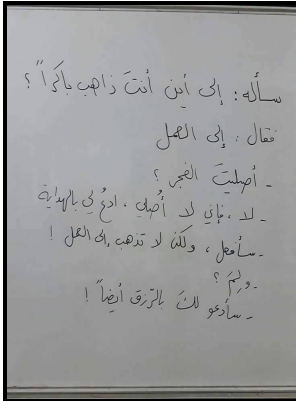 سأله: إلى أين أنتَ ذاهب باكراً ؟
فقال: إلى العمل
- أصليتَ الفجر ؟
- لا ، فإني لا أُصلي ، ادعُ لي بالهداية
- سأفعل ، ولكن لا تذهب إلى العمل !
- ولِمَ ؟
- سأدعو لكَ بالرزق أيضاً !